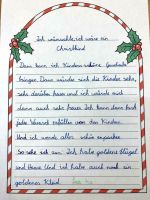 Ich wünschte, ich wäre ein
Christkind
Dann kann ich Kindern schöne Geschenke
bringen. Dann würde sind die Kinder sehr,
sehr darüber freuen und ich würde mich
dann auch sehr freuen. Ich kann dann auch
jede Wunsch erfüllen von den Kindern.
Und ich werde alles schön
So sehe ich aus. Ich habe goldene Flügel
und Haare. Und ich habe auch noch ein
goldenes Kleid.